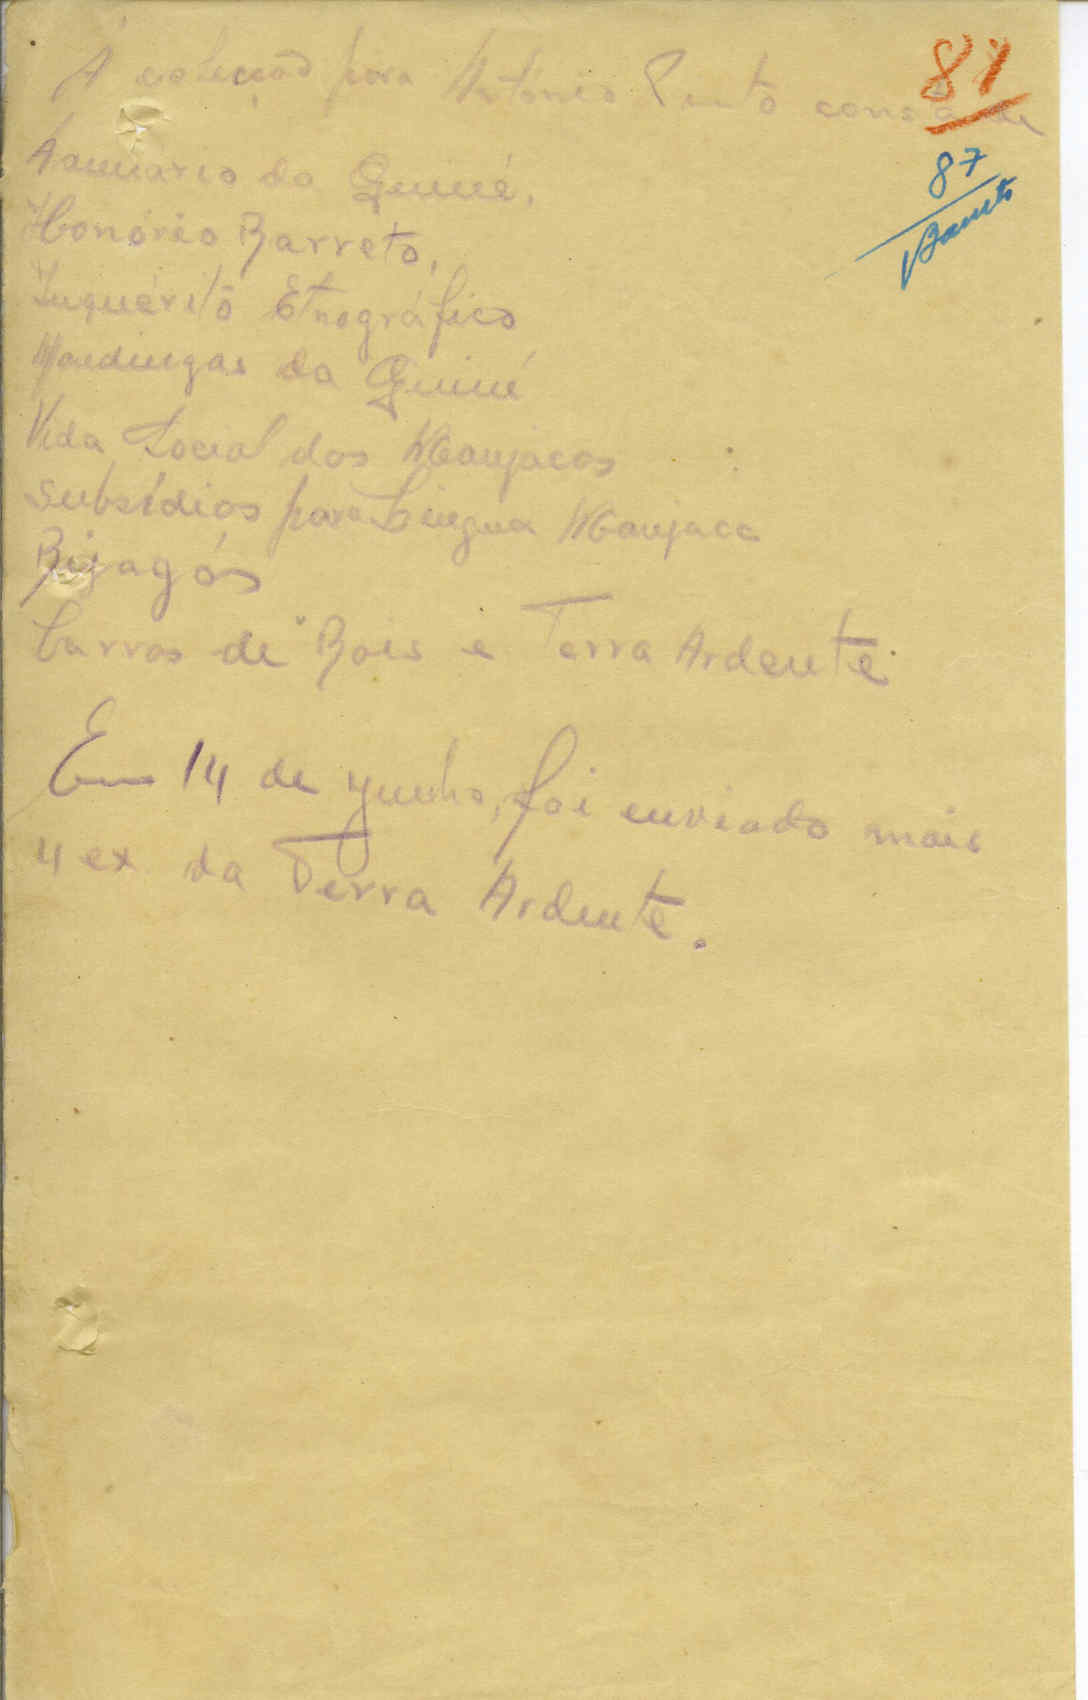 A colecção para António Pinto consta de
81
87
Anuario da Guiné,
Honório Barreto,
Inquérito Etnográfico
Mandingas da Guiné
Vida Social dos Manjacos
Subsídios para Lingua Manjaca
Bijagós
Carros de Bois e Terra Ardente
Em 14 de Junho, foi enviado mais
4 ex da Terra Ardente.